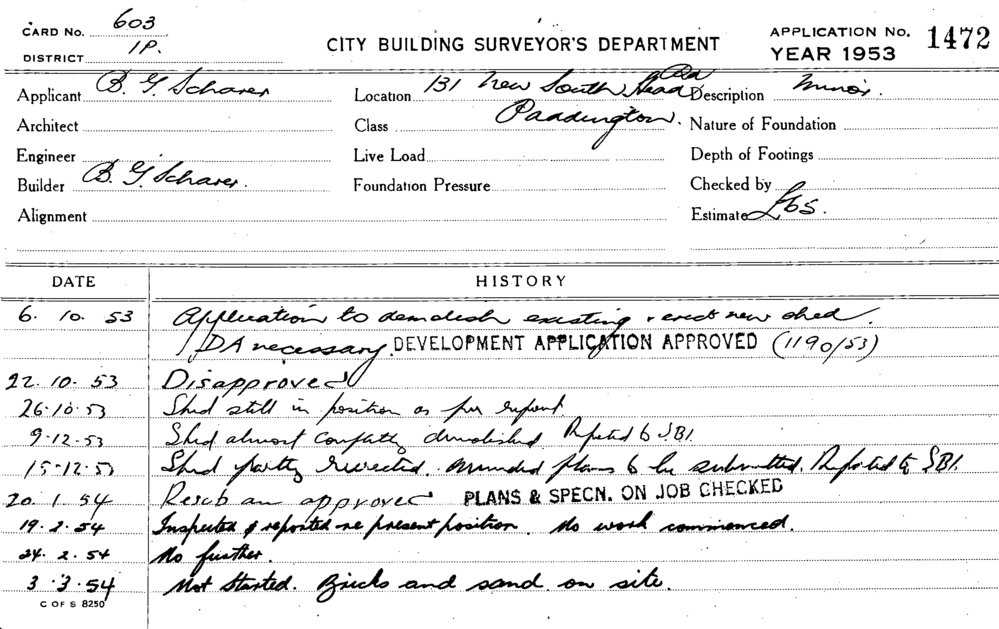 CARD No. 603
DISTRICT 1P.
CITY BUILDING SURVEYOR'S DEPARTMENT
APPLICATION No. 1472
YEAR 1953
Applicant B. G. Scharer Location 131 New South Head Rd Description Minor.
Architect Class Paddington. Nature of Foundation
Engineer Live Load Depth of Footings
Builder B. G. Scharer. Foundation Pressure Checked by
Alignment Estimate £65.
DATE HISTORY
6. 10. 53 Application to demolish existing & erect new shed.
DA necessary. DEVELOPMENT APPLICATION APPROVED (1190/53)
22. 10. 53 Disapproved
26.10.53 Shed still in position as per report.
9.12.53 Shed almost completely demolished Reported to SBI.
15.12.53 Shed partly reerected. Amended plans to be submitted. Reported to SBI.
20. 1. 54 approved PLANS & SPECN. ON JOB CHECKED
19. 2. 54 Inspected & reported re present position. No work commenced.
24. 2. 54 No further.
3. 3. 54 Not Started. Bricks and sand on site.
C OF S 8250